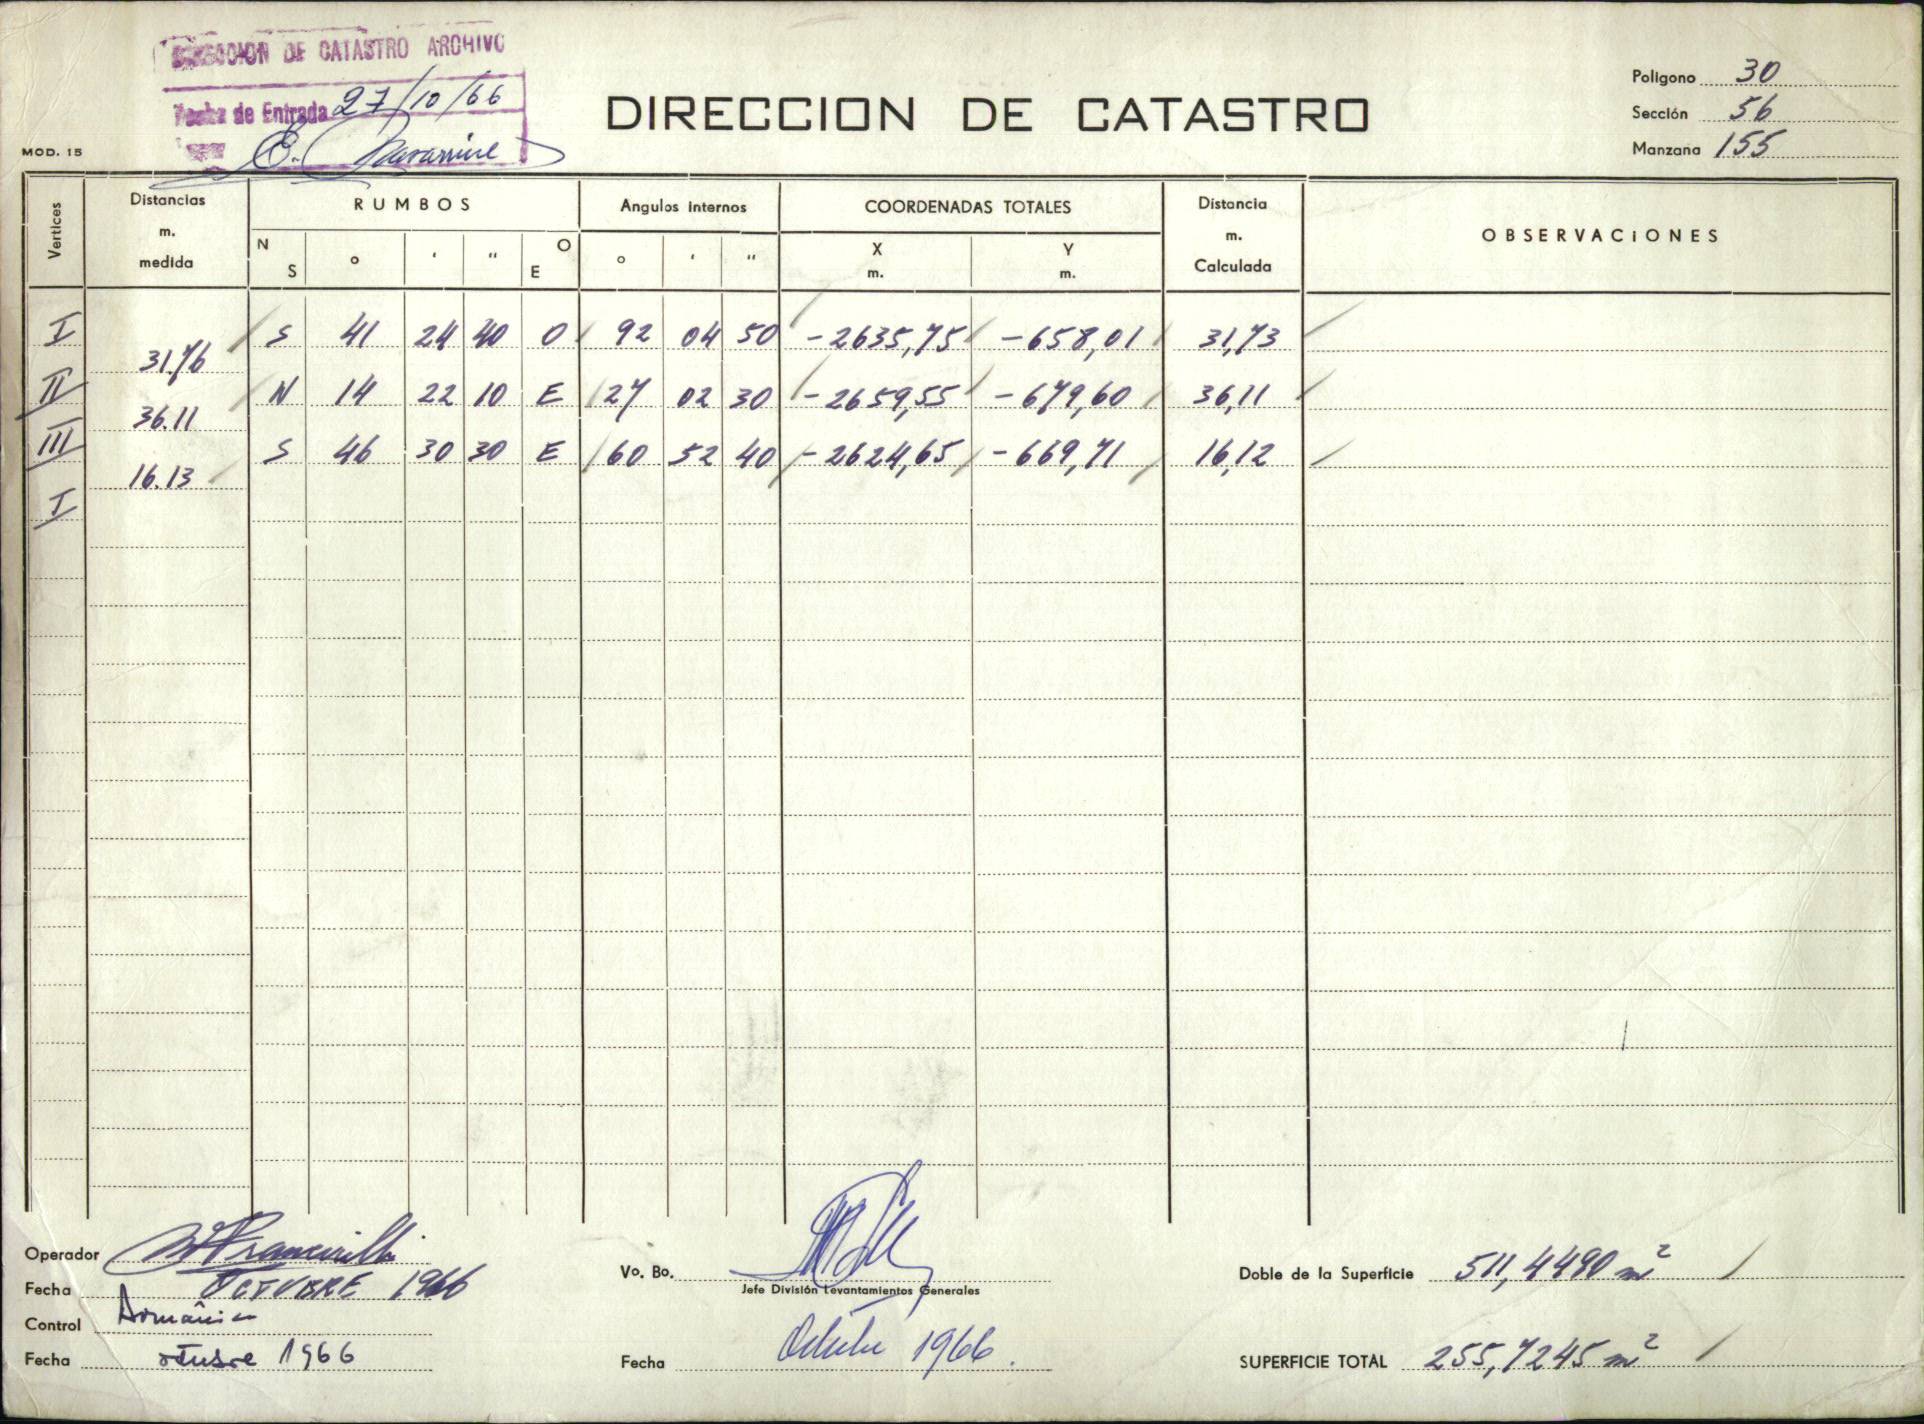 DIRECCION DE CATASTRO ARCHIVO
Fecha de Entrada 27/10/66
MOD. 15
DIRECCION DE CATASTRO
Poligono 30
Sección 56
Manzana 155
Vertices
Distancias m. medida
RUMBOS
N S ° ' " O E
Angulos internos
° ' "
COORDENADAS TOTALES
X m. Y m.
Distancia m. Calculada
OBSERVACiONES
I S 41 24 40 O 92 04 50 -2635,75 -658,01 31,73
31.76
II N 14 22 10 E 27 02 30 -2659,55 -679,60 36,11
36.11
III S 46 30 30 E 60 52 40 -2624,65 -669,71 16,12
16.13
I
Operador
Fecha OCTUBRE 1966
Control
Fecha octubre 1966
Vo. Bo.
Jefe División Levantamientos Generales
Fecha Octubre 1966.
Doble de la Superficie 511,4490 m²
SUPERFICIE TOTAL 255,7245 m²